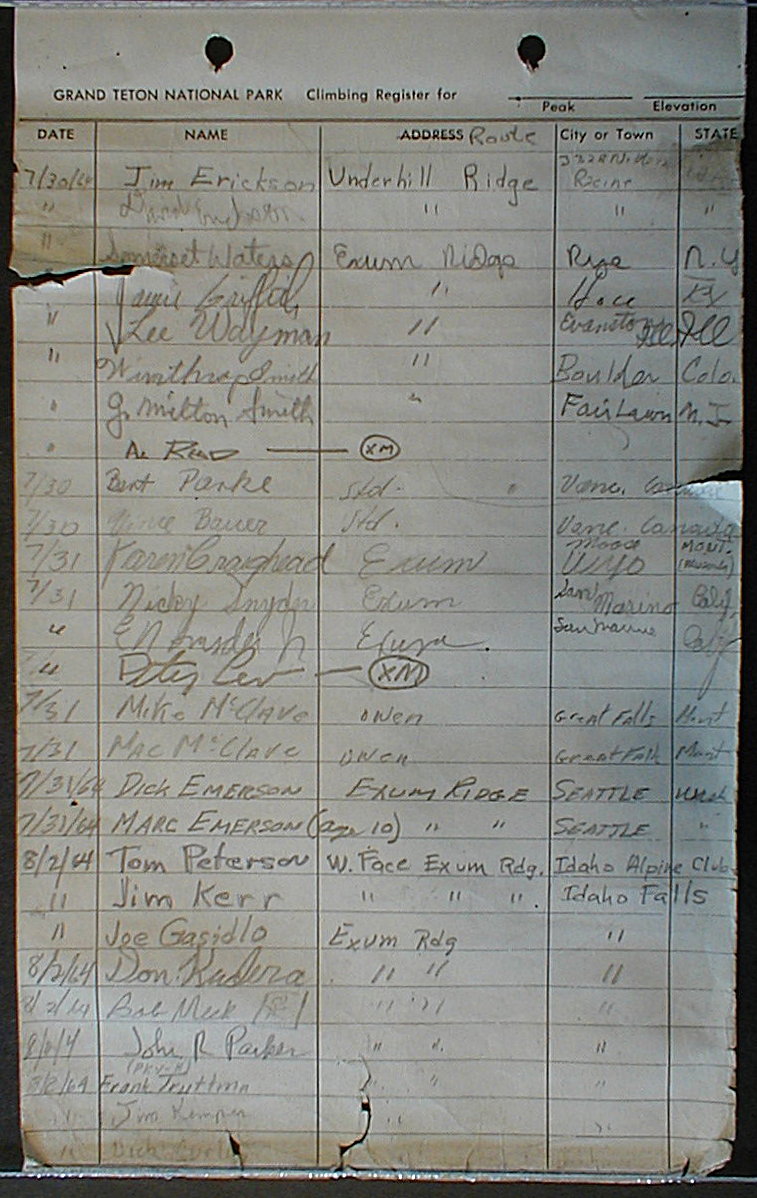 GRAND TETON NATIONAL PARK Climbing Register for
Peak Elevation
DATE NAME ADDRESS Route City or Town STATE
7/30/64 Jim Erickson Underhill Ridge Racine
" " " "
" Somerset Waters Exum Ridge Rye N.Y
Jamie Griffith " Ky
" Lee Wayman " Evanston Ill
" Winthrop Smith " Boulder Colo.
" J. Milton Smith " Fair Lawn N.J.
" Al Read — XM
7/30 Bert Parke Std. " Vanc. Canada
7/30 Vince Bauer Std. Vanc. Canada
7/31 Karen Craighead Exum Moose Wyo MONT.
7/31 Nicky Snyder Exum San Marino Calif.
" Exum San Marino Calif
" Peter Lev — XM
7/31 Mike McClave Owen Great Falls Mont
7/31 Mac McClave Owen Great Falls Mont
7/31/64 DICK EMERSON EXUM RIDGE SEATTLE Wash
7/31/64 MARC EMERSON (age 10) " " SEATTLE "
8/2/64 Tom Peterson W. Face Exum Rdg. Idaho Alpine Club.
" Jim Kerr " " ". Idaho Falls
" Joe Gasidlo Exum Rdg "
8/2/64 Don Kudera " " "
8/2/64 Bob Meek " " "
John R Parker " " "
8/2/64 Frank Truttman " " "
" Jim Kemper " "
" Dick